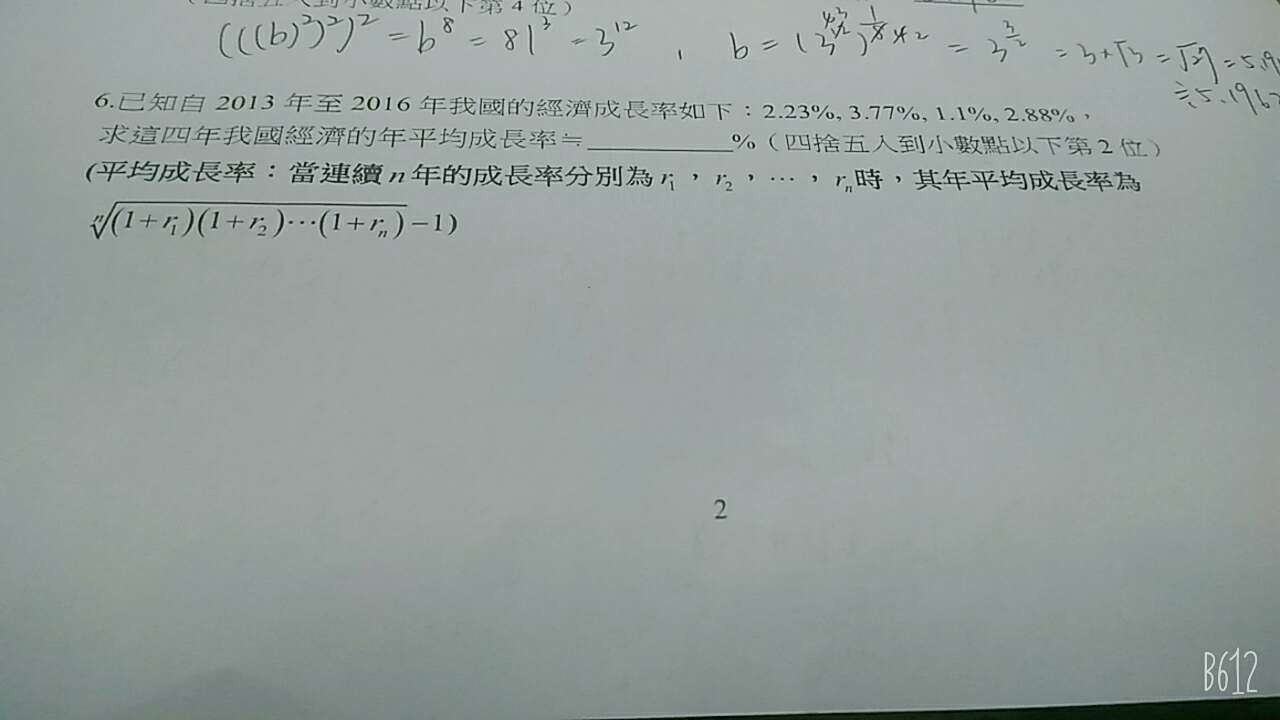 (四捨五入到小數點以下第4位)
(((b)²)²)² = b⁸ = 81³ = 3¹² , b = (3¹²)^(1/8) = 3^(3/2) = 3×√3 = √27 = 5.19
≒5.196
6.已知自 2013 年至 2016 年我國的經濟成長率如下:2.23%, 3.77%, 1.1%, 2.88%,
求這四年我國經濟的年平均成長率≒__________%(四捨五入到小數點以下第2位)
(平均成長率:當連續 n 年的成長率分別為 r₁,r₂,⋯,rₙ時,其年平均成長率為
ⁿ√((1+r₁)(1+r₂)⋯(1+rₙ)) −1)
2
B612